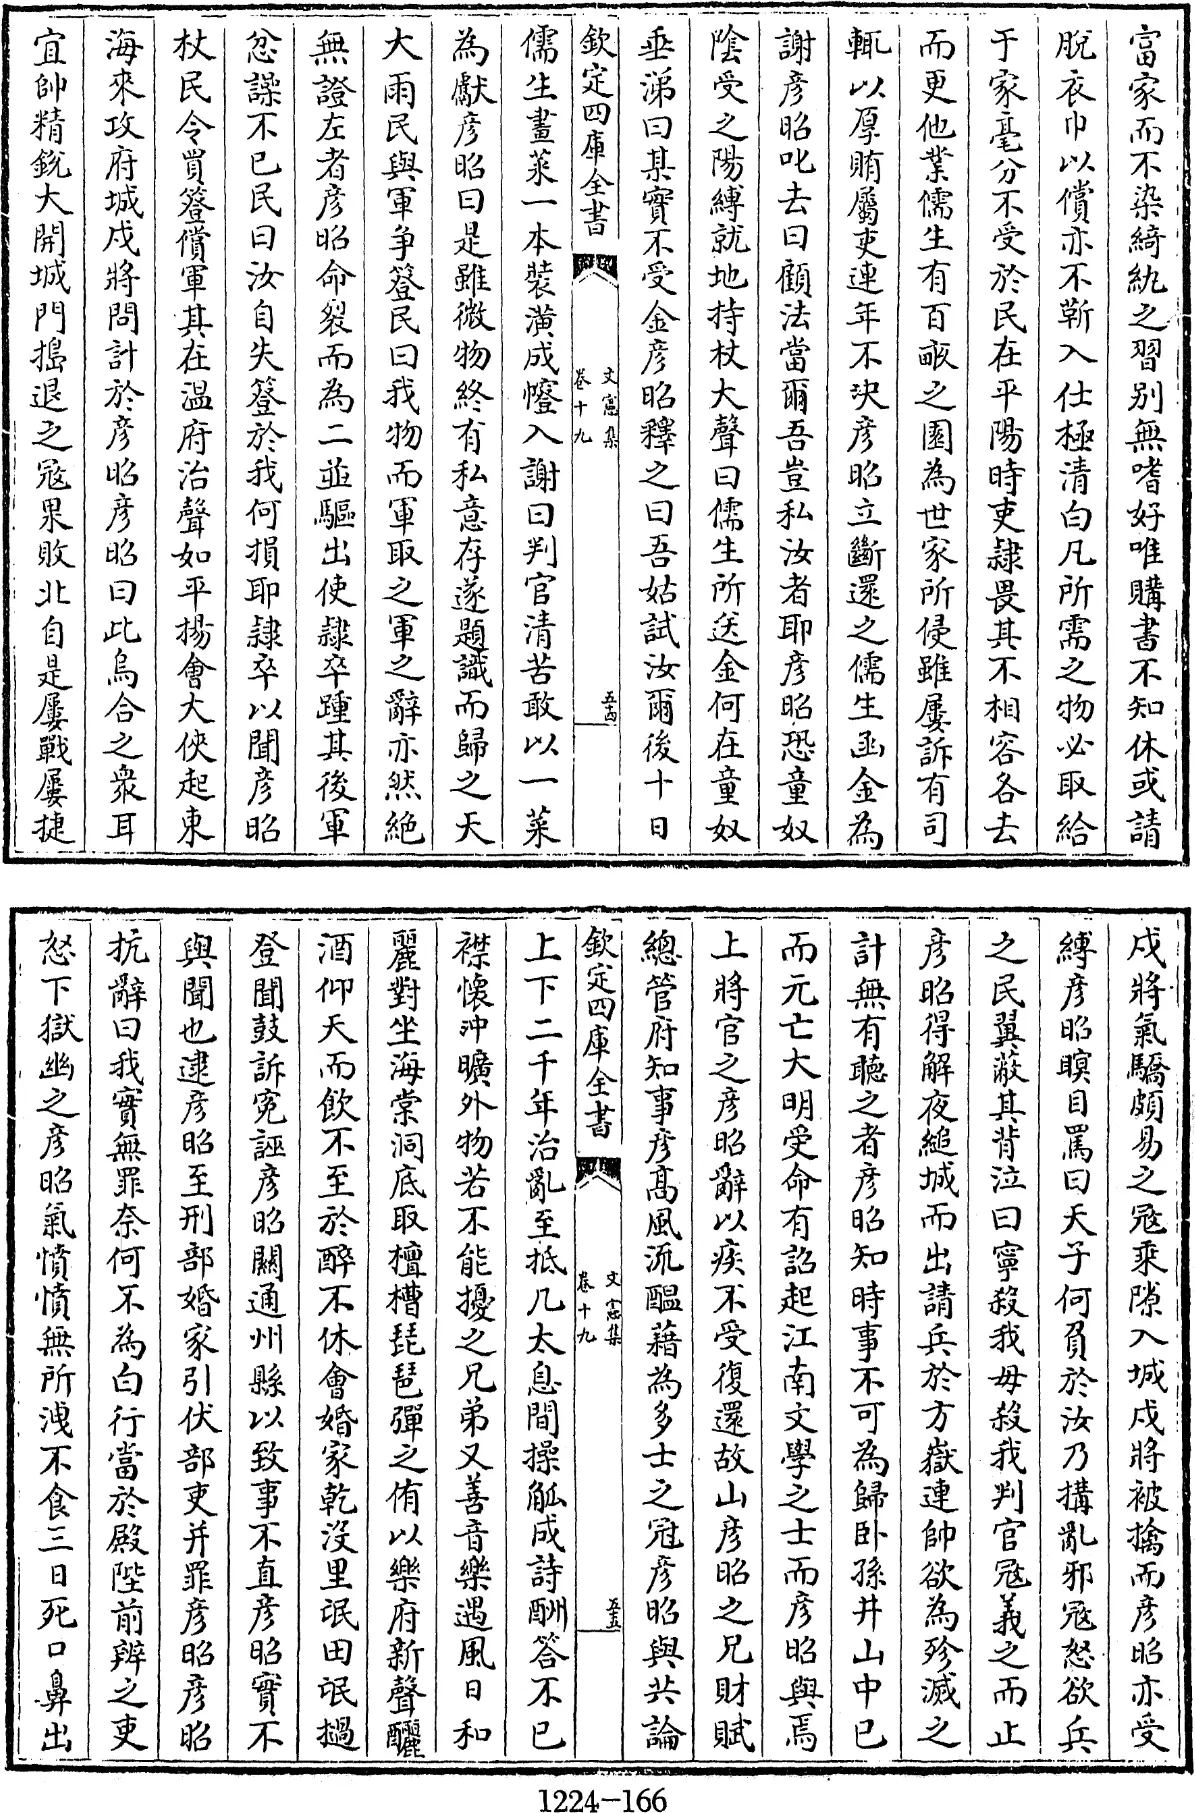 富家而不染綺紈之習别無嗜好唯購書不知休或請
脫衣巾以償亦不靳入仕極清白凡所需之物必取給
于家毫分不受於民在平陽時吏隸畏其不相容各去
而更他業儒生有百畝之園為世家所侵雖屢訴有司
輒以厚賄屬吏連年不決彦昭立斷還之儒生函金為
謝彦昭叱去曰顧法當爾吾豈私汝者耶彦昭恐童奴
陰受之陽縛就地持杖大聲曰儒生所送金何在童奴
垂涕曰某實不受金彦昭釋之曰吾姑試汝爾後十日
欽定四庫全書
文憲集
卷十九
五十四
儒生畫菜一本裝潢成㡧入謝曰判官清苦敢以一菜
為獻彦昭曰是雖微物終有私意存遂題識而歸之天
大雨民與軍争簦民曰我物而軍取之軍之辭亦然絶
無證左者彦昭命裂而為二並驅出使隸卒踵其後軍
忿譟不已民曰汝自失簦於我何損耶隸卒以聞彦昭
杖民令買簦償軍其在温府治聲如平揚會大俠起東
海來攻府城戍將問計於彦昭彦昭曰此烏合之衆耳
宜帥精銳大開城門搗退之冦果敗北自是屢戰屢捷
戍將氣驕頗易之冦乘隙入城戍將被擒而彦昭亦受
縛彦昭瞋目罵曰天子何負於汝乃搆亂邪冦怒欲兵
之民翼蔽其背泣曰寧殺我毋殺我判官冦義之而止
彦昭得解夜縋城而出請兵於方嶽連帥欲為殄滅之
計無有聽之者彦昭知時事不可為歸卧孫井山中已
而元亡大明受命有詔起江南文學之士而彦昭與焉
上將官之彦昭辭以疾不受復還故山彦昭之兄財賦
總管府知事彦髙風流醖藉為多士之冠彦昭與共論
欽定四庫全書
文憲集
卷十九
五十五
上下二千年治亂至抵几太息間操觚成詩酬答不已
襟懷沖曠外物若不能擾之兄弟又善音樂遇風日和
麗對坐海棠洞底取檀槽琵琶彈之侑以樂府新聲釃
酒仰天而飲不至於醉不休會婚家乾没里氓田氓撾
登聞鼓訴寃誣彦昭闗通州縣以致事不直彦昭實不
與聞也逮彦昭至刑部婚家引伏部吏并罪彦昭彦昭
抗辭曰我實無罪奈何不為白行當於殿陛前辨之吏
怒下獄幽之彦昭氣憤憤無所洩不食三日死口鼻出
1224-166